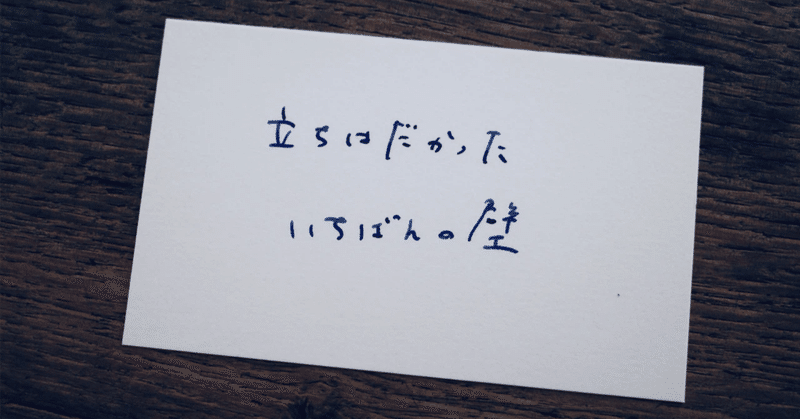 立ちはだかった
いちばんの壁